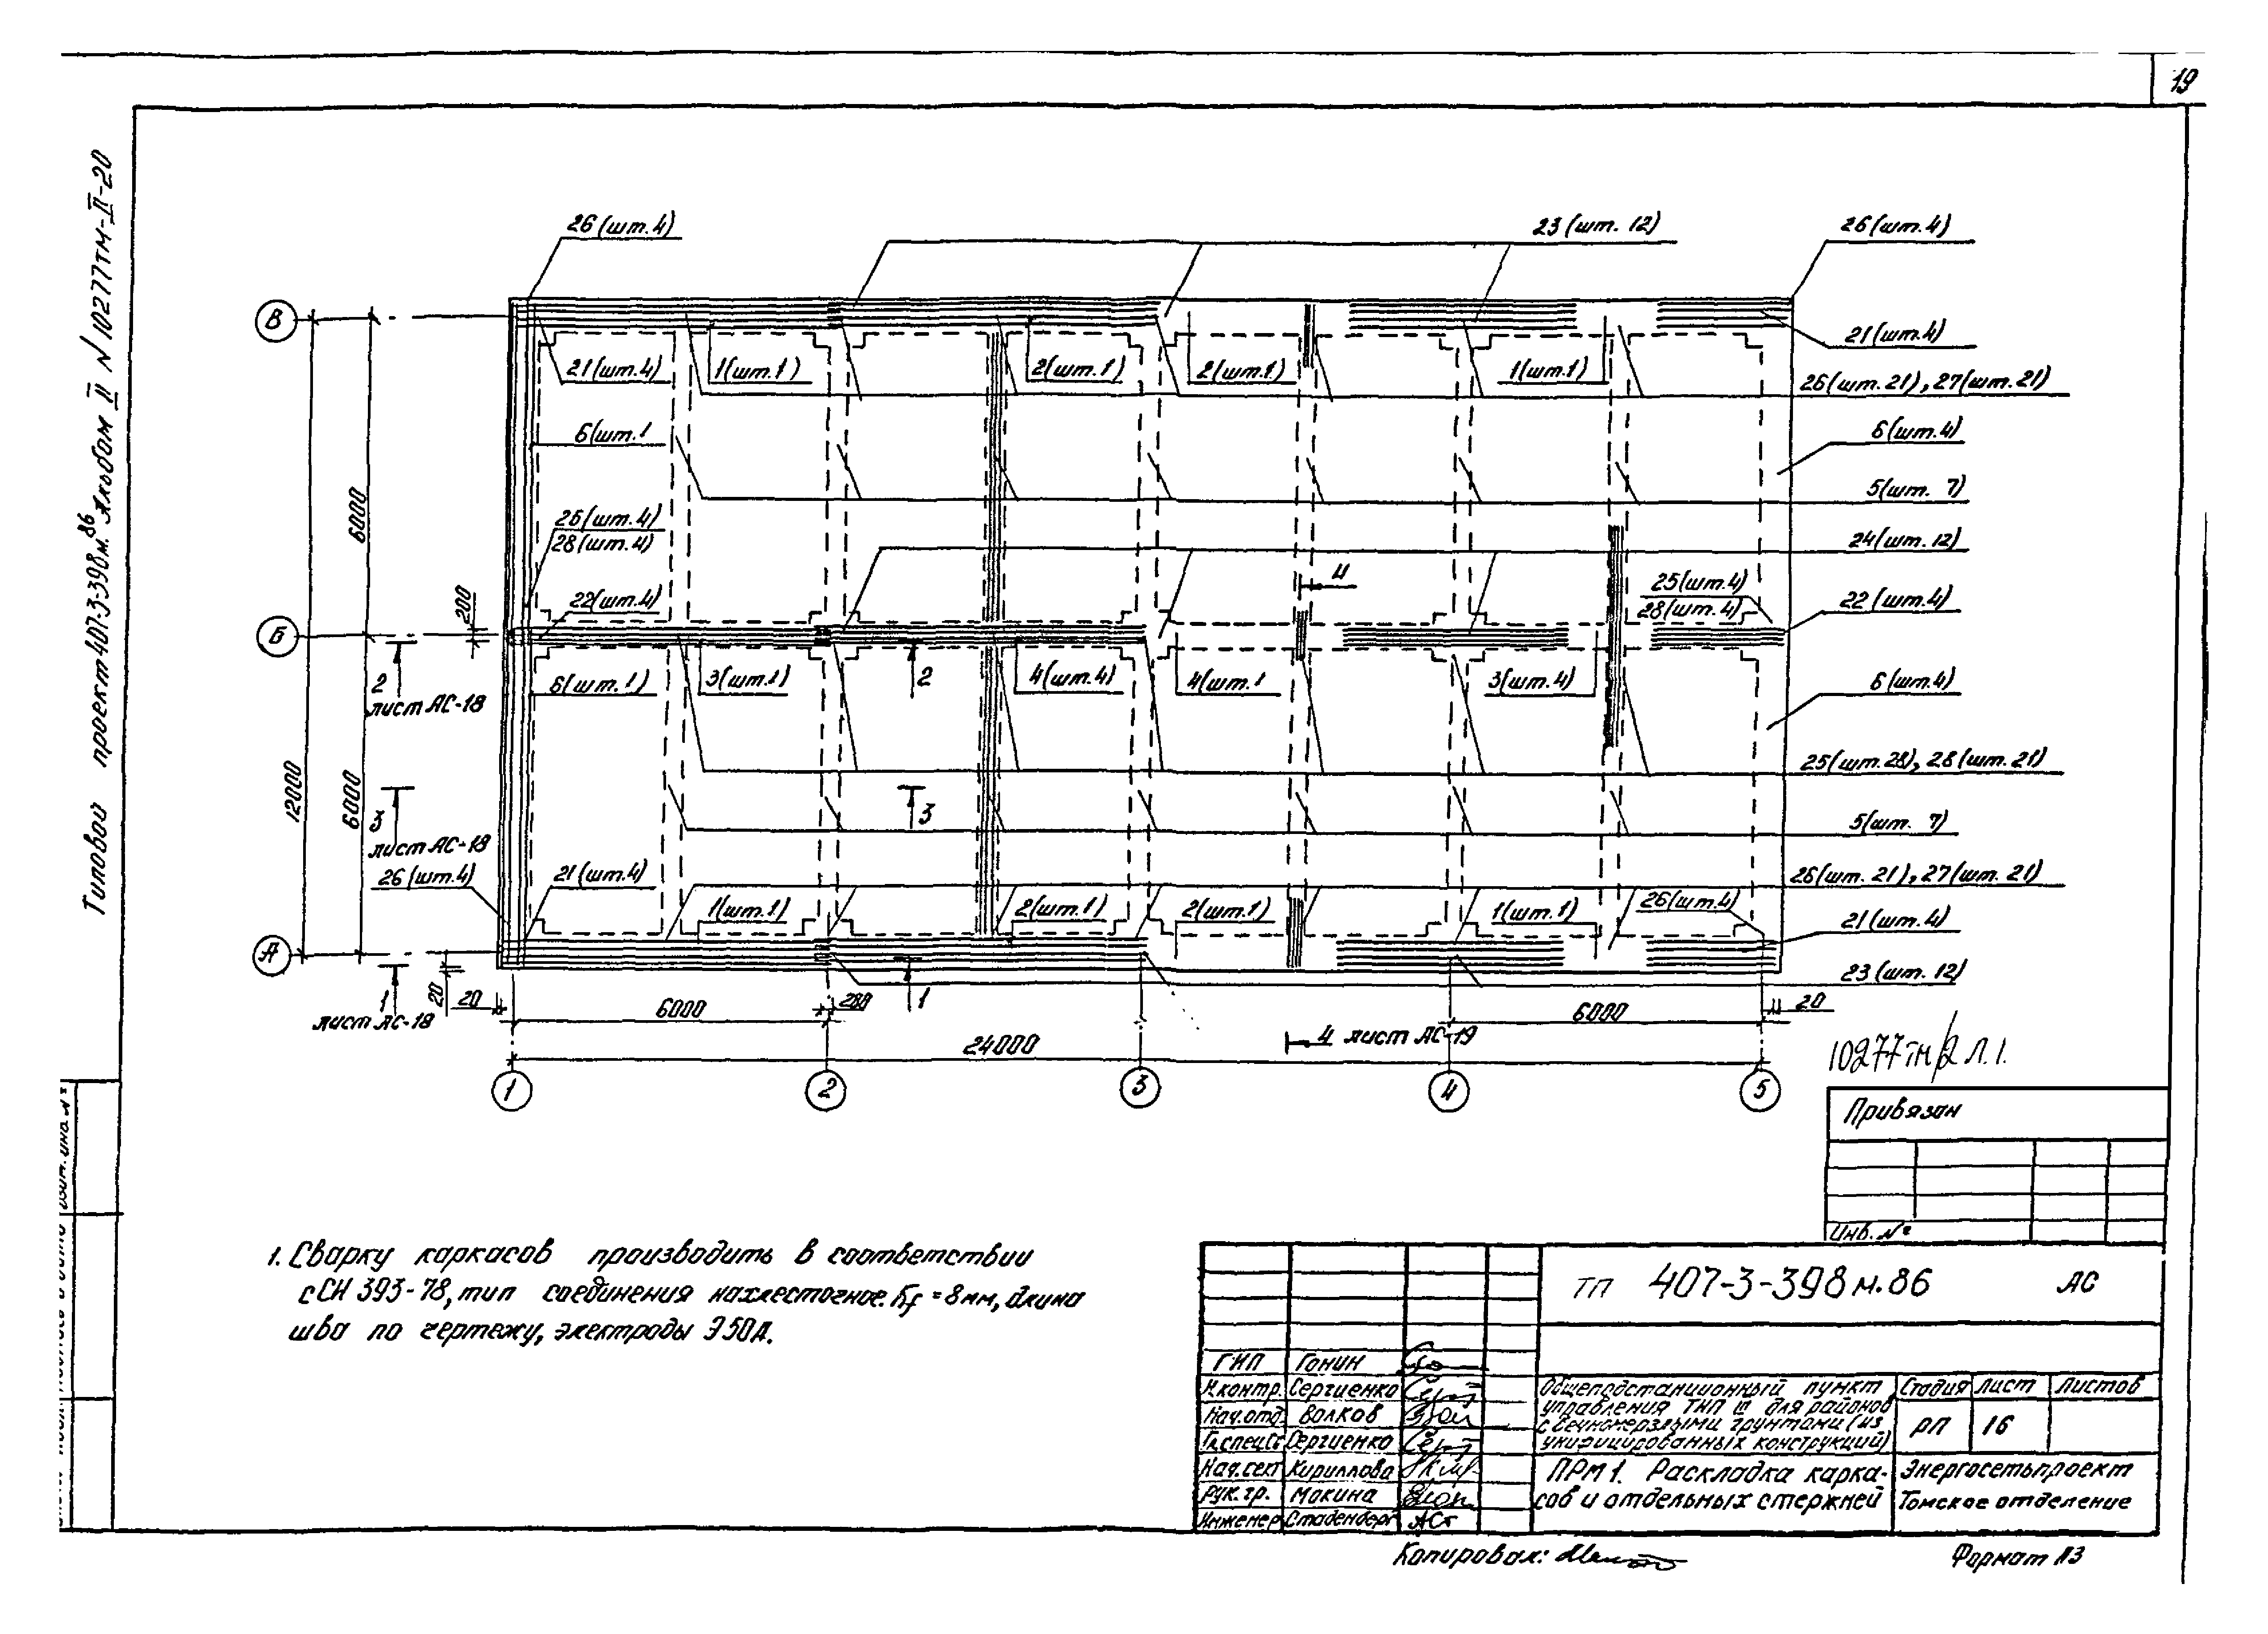 19
Типовой проект 407-3-398м.86 Альбом II N 10277тм-II-20
26 (шт. 4)
23 (шт. 12)
26 (шт. 4)
В
21 (шт. 4)
1 (шт. 1)
2 (шт. 1)
2 (шт. 1)
1 (шт. 1)
21 (шт. 4)
26 (шт. 21), 27 (шт. 21)
6 (шт. 1
6 (шт. 4)
6000
5 (шт. 7)
25 (шт. 4)
28 (шт. 4)
24 (шт. 12)
4
200
22 (шт. 4)
25 (шт. 4)
28 (шт. 4)
22 (шт. 4)
Б
2
лист АС-18
6 (шт. 1)
3 (шт. 1)
2
4 (шт. 4)
4 (шт. 1
3 (шт. 4)
6 (шт. 4)
12000
6000
25 (шт. 28), 28 (шт. 21)
3
лист АС-18
3
5 (шт. 7)
26 (шт. 4)
21 (шт. 4)
26 (шт. 21), 27 (шт. 21)
1 (шт. 1)
2 (шт. 1)
2 (шт. 1)
1 (шт. 1)
26 (шт. 4)
21 (шт. 4)
А
23 (шт. 12)
1
лист АС-18
20
20
6000
280
1
6000
20
24000
4 лист АС-19
1
2
3
4
5
10277тм/2 Л.1.
Привязан
Инв. №
1. Сварку каркасов производить в соответствии
с СН 393-78, тип соединения нахлесточное. Kf = 8мм, длина
шва по чертежу, электроды Э50А.
ТП 407-3-398м.86 АС
ГИП Гонин
Н.контр. Сергиенко
Нач.отд. Волков
Гл.спец.Ст Сергиенко
Нач.сект Кириллова
Рук. гр. Мокина
Инженер Стаденберг
Общеподстанционный пункт
управления тип III для районов
с вечномерзлыми грунтами (из
унифицированных конструкций)
Стадия Лист Листов
РП 16
ПРМ1. Раскладка карка-
сов и отдельных стержней
Энергосетьпроект
Томское отделение
Копировал:
Формат А3